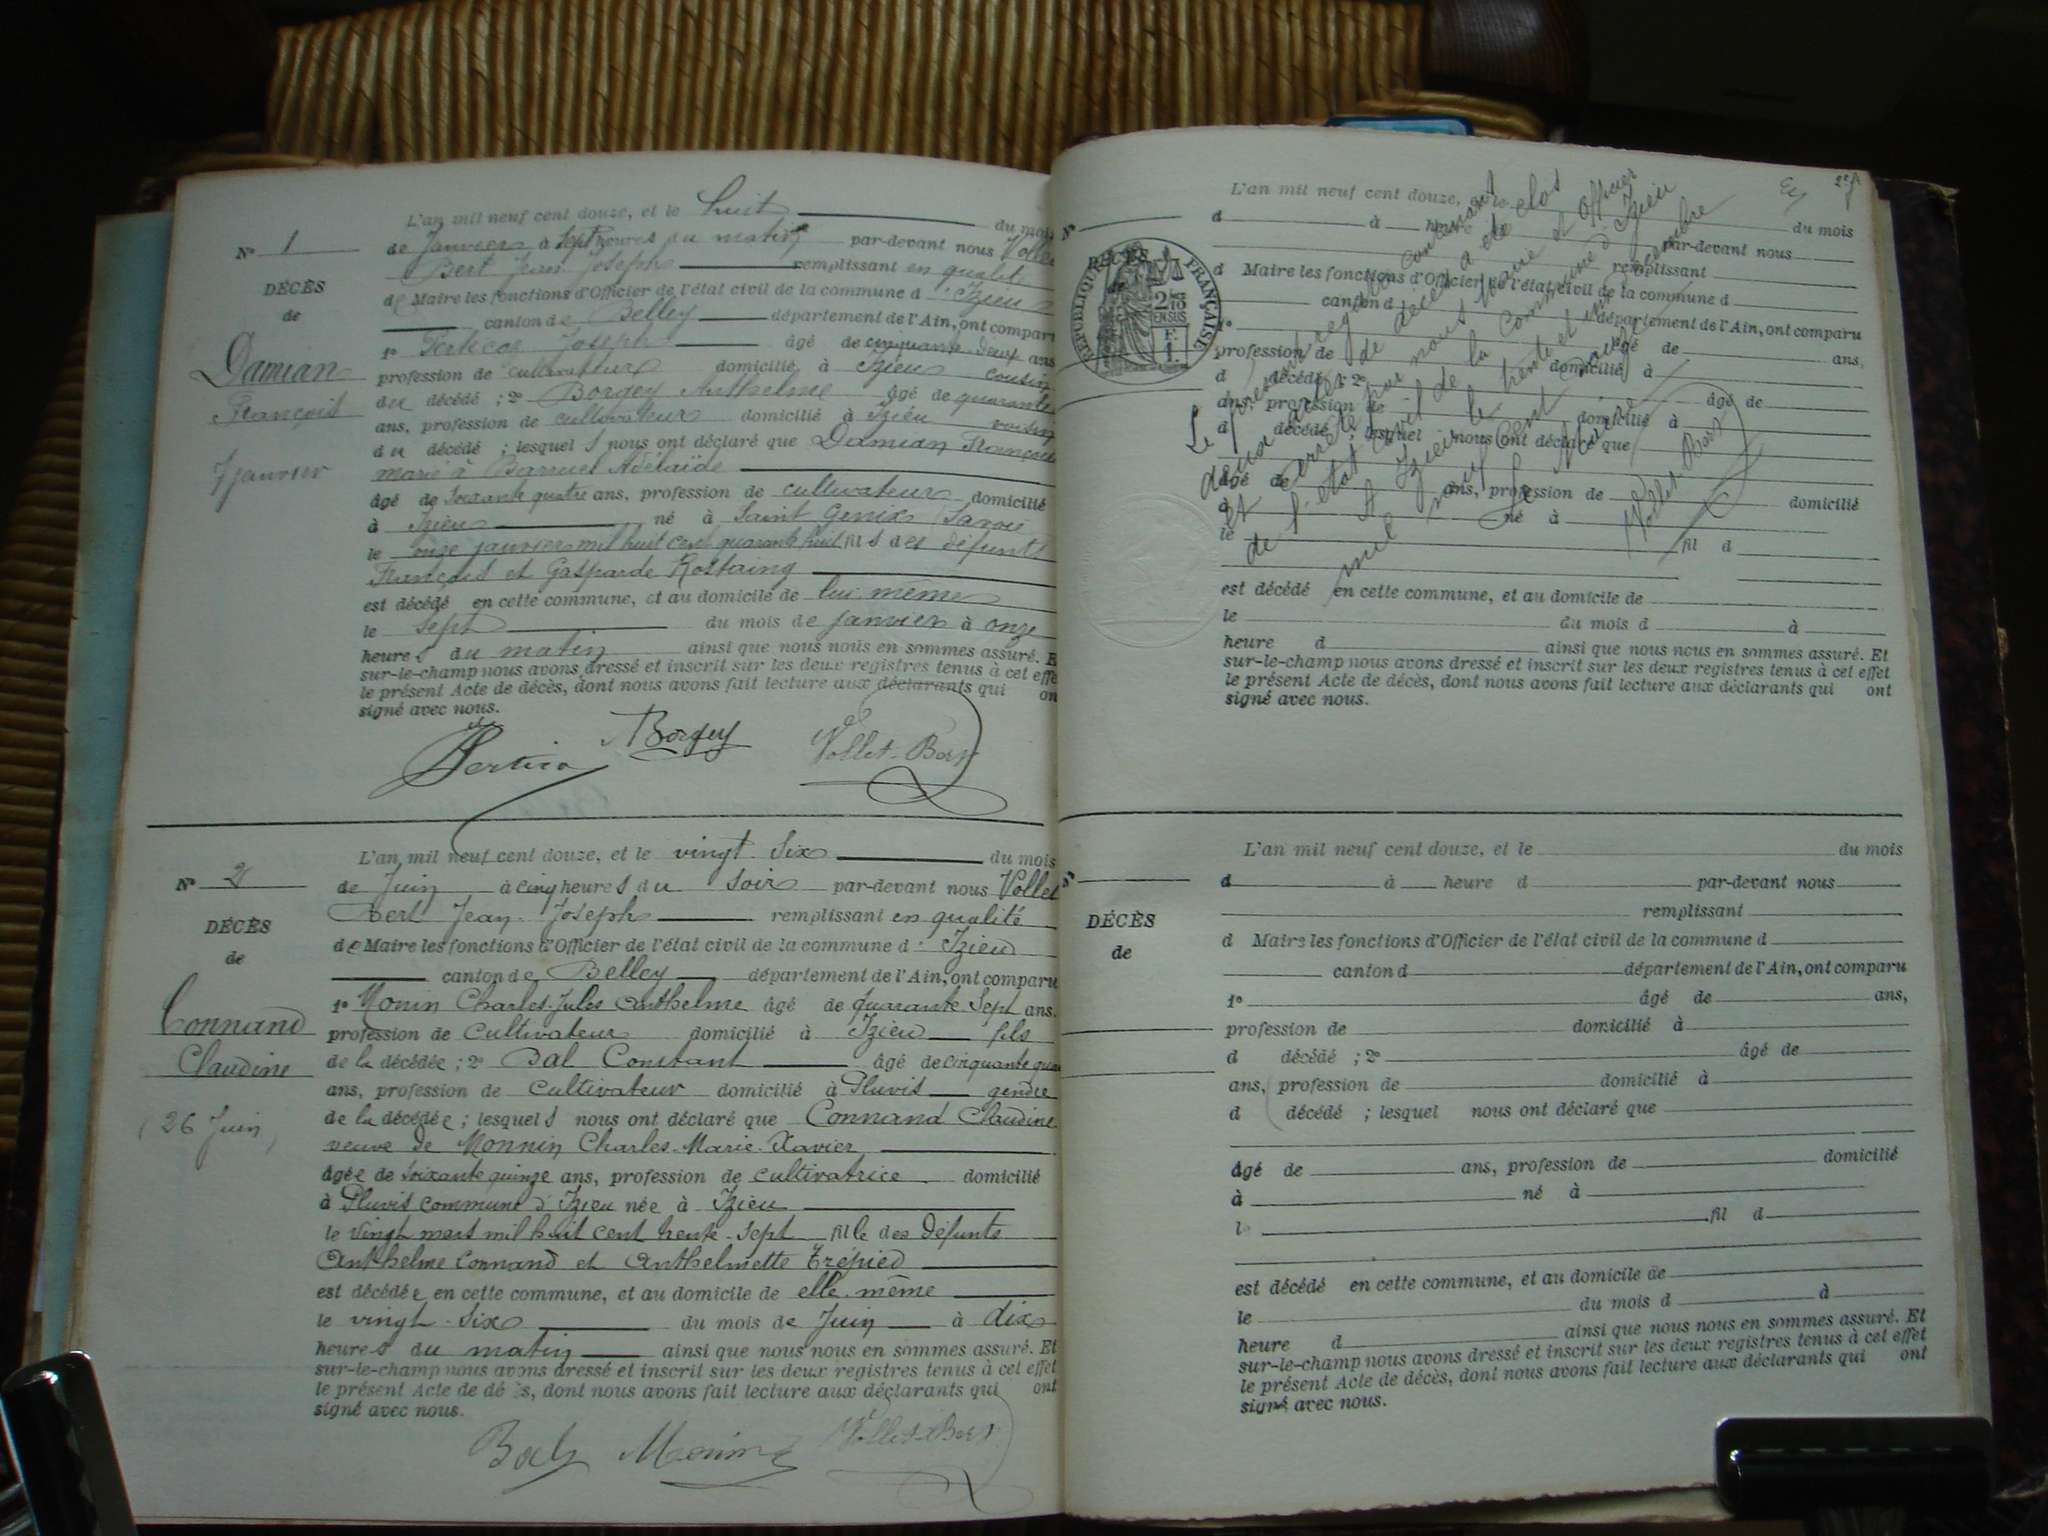 L'an mil neuf cent douze, et le huit du mois
N° 1
de Janvier à Sept heures du matin par-devant nous Vollet
Bert Jean Joseph remplissant en qualité
DÉCÈS
de Maire les fonctions d'Officier de l'état civil de la commune d'Izieu
de
canton de Belley département de l'Ain, ont comparu
1° Joseph âgé de cinquante deux ans
Damian
profession de cultivateur domicilié à Izieu cousin
François
du décédé ; 2° Borgey Anthelme âgé de quarante
ans, profession de cultivateur domicilié à Izieu voisin
du décédé ; lesquels nous ont déclaré que Damian François
7 janvier
marié à Barruel Adélaïde
âgé de soixante quatre ans, profession de cultivateur domicilié
à Izieu né à Saint Genix Savoie
le onze janvier mil huit cent quarante huit fils des défunts
François et Gasparde Rostaing
est décédé en cette commune, et au domicile de lui même
le sept du mois de janvier à onze
heures du matin ainsi que nous nous en sommes assuré. E
sur-le-champ nous avons dressé et inscrit sur les deux registres tenus à cet effe
le présent Acte de décès, dont nous avons fait lecture aux déclarants qui on
signé avec nous.
ABorgey Vollet-Bert
L'an mil neuf cent douze, et le vingt-six du mois
N° 2
de Juin à cinq heures du soir par-devant nous Vollet
Bert Jean-Joseph remplissant en qualité
DÉCÈS
de Maire les fonctions d'Officier de l'état civil de la commune d'Izieu
de
canton de Belley département de l'Ain, ont comparu
1° Monin Charles-Jules Anthelme âgé de quarante-sept ans.
Connand
profession de cultivateur domicilié à Izieu fils
Claudine
de la décédée ; 2° Bal Constant âgé de cinquante qua
ans, profession de cultivateur domicilié à Pluvis gendre
de la décédée ; lesquels nous ont déclaré que Connand Claudine
(26 Juin)
veuve de Monnin Charles-Marie-Xavier
âgée de soixante quinze ans, profession de cultivatrice domicilié
à Pluvis commune d'Izieu née à Izieu
le vingt mars mil huit cent trente-sept fille des défunts
Anthelme Connand et Anthelmette Trépied
est décédée en cette commune, et au domicile de elle-même
le vingt-six du mois de Juin à dix
heures du matin ainsi que nous nous en sommes assuré. Et
sur-le-champ nous avons dressé et inscrit sur les deux registres tenus à cet effet
le présent Acte de décès, dont nous avons fait lecture aux déclarants qui ont
signé avec nous.
Monin Vollet-Bert
L'an mil neuf cent douze, et le du mois
N°
d à heure d par-devant nous
remplissant
DÉCÈS
RÉPUBLIQUE FRANÇAISE
d Maire les fonctions d'Officier de l'état civil de la commune d
canton d département de l'Ain, ont comparu
1° âgé de ans,
profession de domicilié à
d décédé ; 2° âgé de
ans, profession de domicilié à
d décédé ; lesquel nous ont déclaré que
âgé de ans, profession de domicilié
à né à
le fil d
est décédé en cette commune, et au domicile de
le du mois d à
heure d ainsi que nous nous en sommes assuré. Et
sur-le-champ nous avons dressé et inscrit sur les deux registres tenus à cet effet
le présent Acte de décès, dont nous avons fait lecture aux déclarants qui ont
signé avec nous.
Le présent registre contenant
deux actes de décès a été clos
et arrêté par nous Maire et Officier
de l'état civil de la commune d'Izieu
A Izieu le trente et un décembre
mil neuf cent douze
Le Maire
Vollet Bert
L'an mil neuf cent douze, et le du mois
N°
d à heure d par-devant nous
remplissant
DÉCÈS
d Maire les fonctions d'Officier de l'état civil de la commune d
de
canton d département de l'Ain, ont comparu
1° âgé de ans,
profession de domicilié à
d décédé ; 2° âgé de
ans, profession de domicilié à
d décédé ; lesquel nous ont déclaré que
âgé de ans, profession de domicilié
à né à
l fil d
est décédé en cette commune, et au domicile de
le du mois d à
heure d ainsi que nous nous en sommes assuré. Et
sur-le-champ nous avons dressé et inscrit sur les deux registres tenus à cet effet
le présent Acte de décès, dont nous avons fait lecture aux déclarants qui ont
signé avec nous.